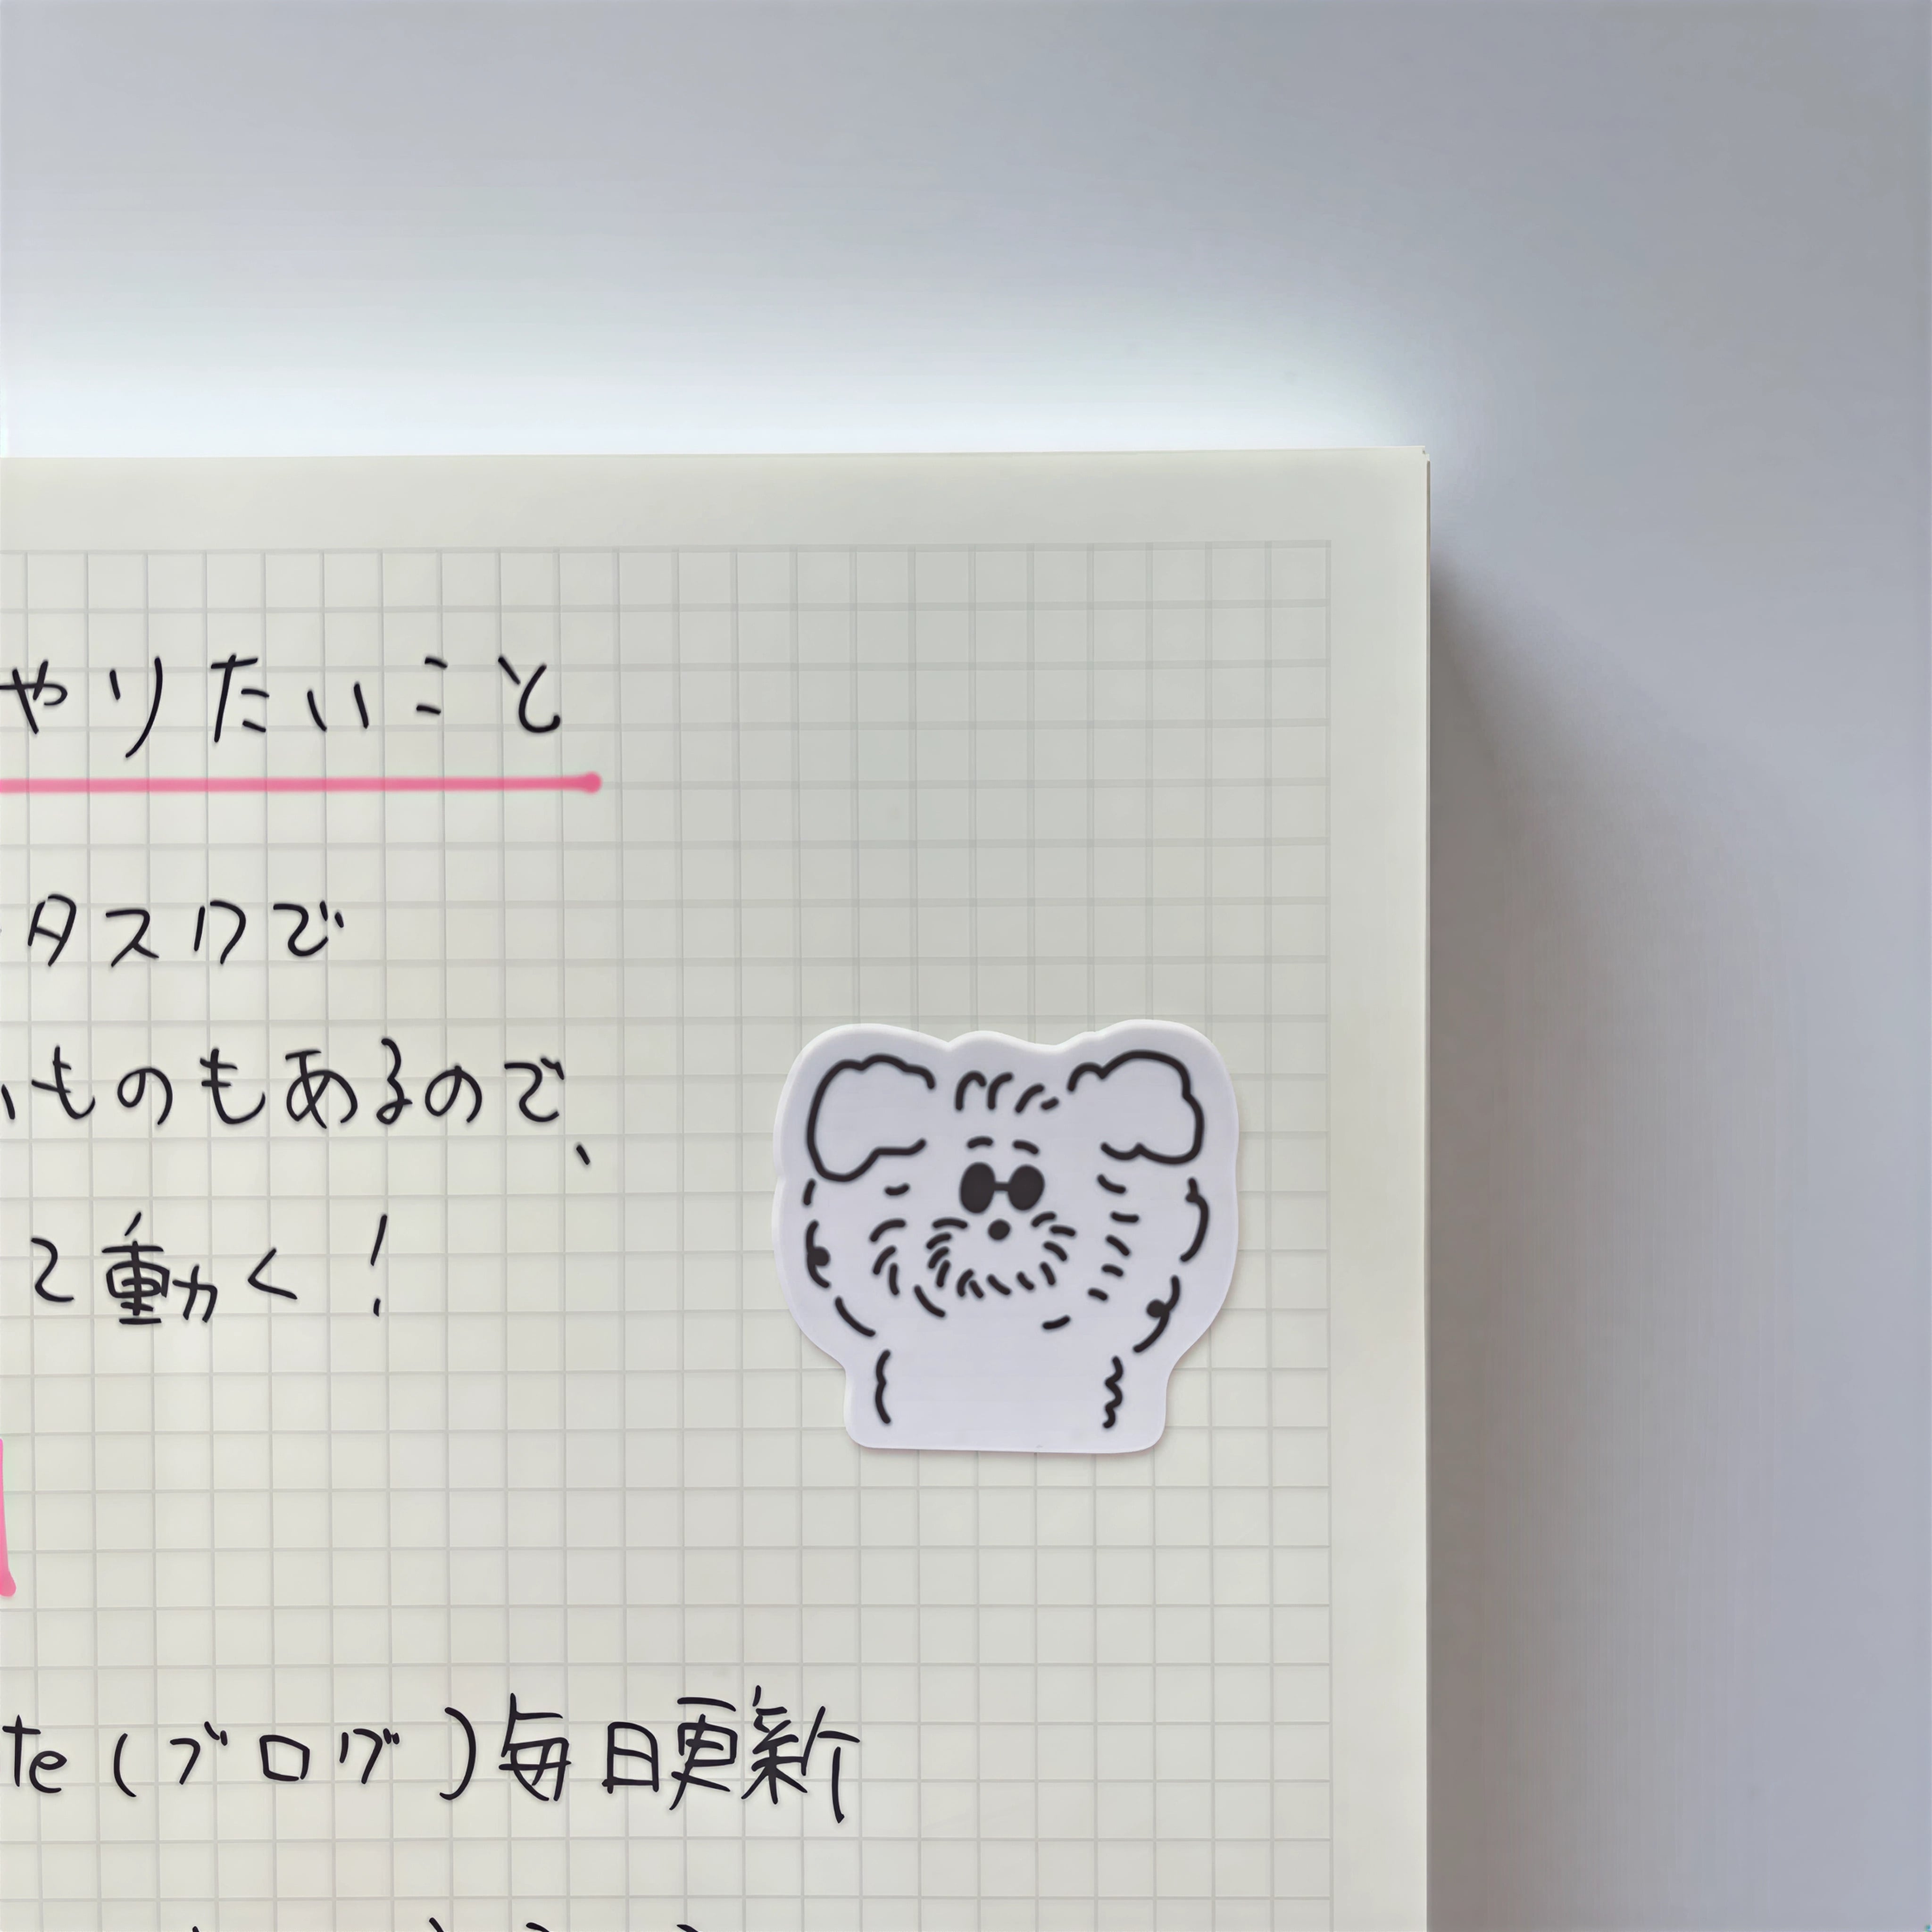 やりたいこと
タスクで
ものもあるので、
て動く!
te (ブログ)毎日更新